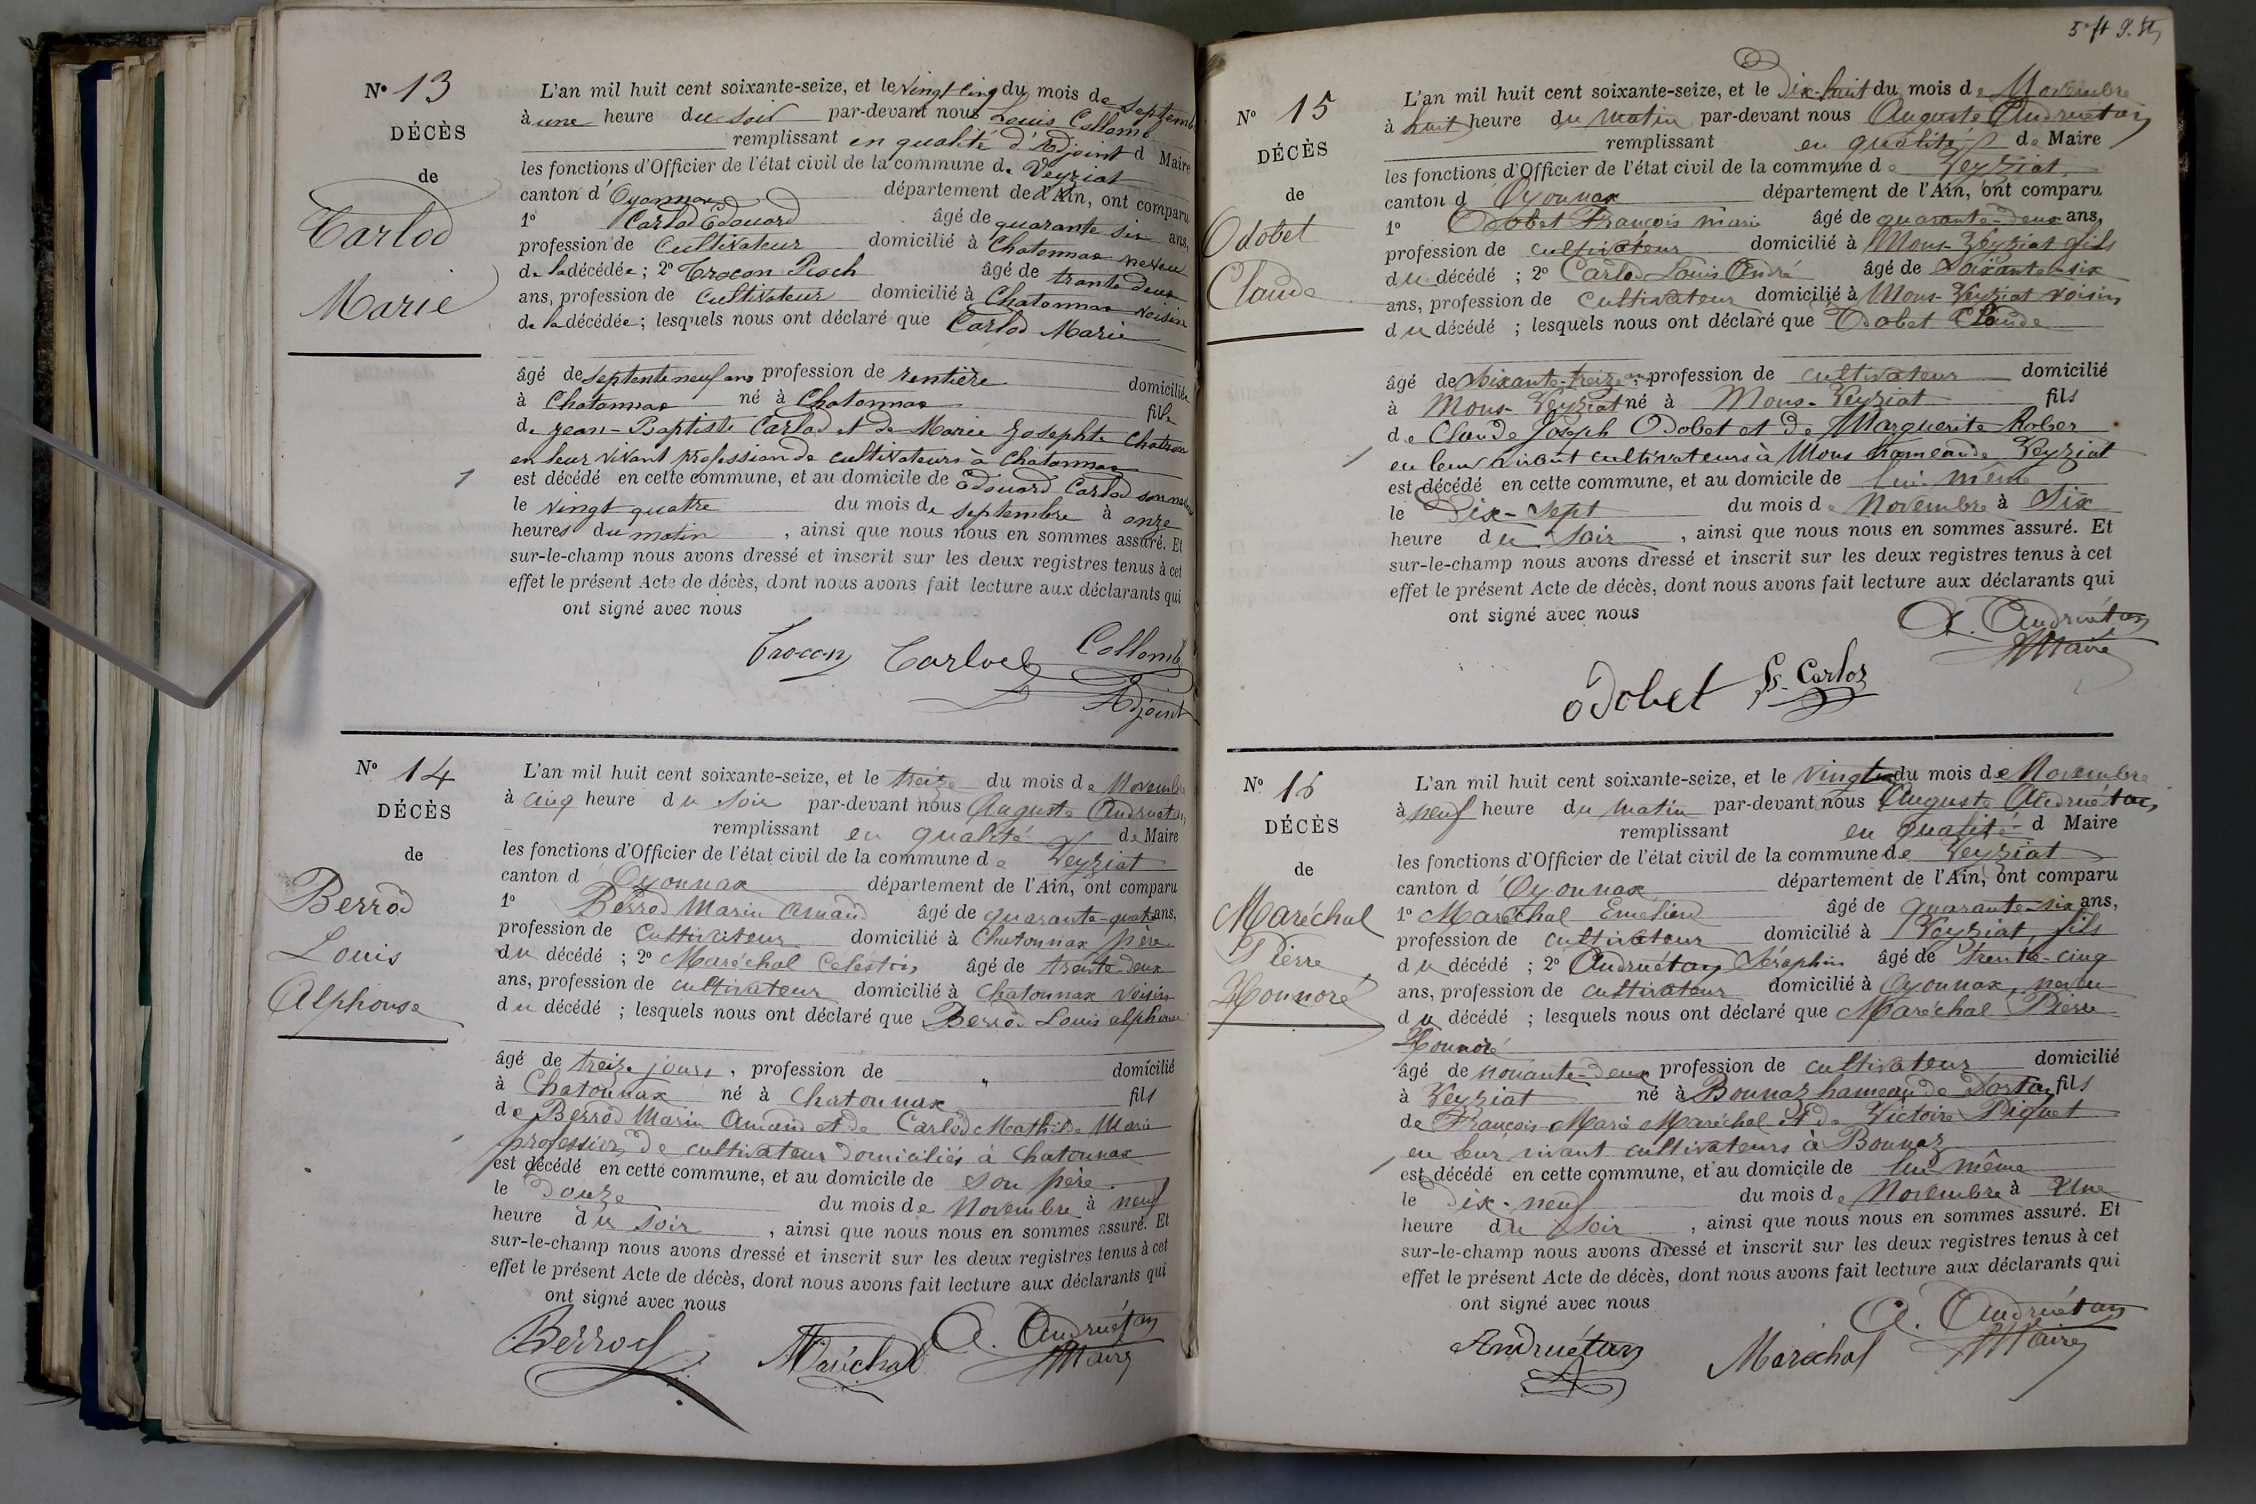 N° 13
DÉCÈS
de
Carlod
Marie
L'an mil huit cent soixante-seize, et le vingt cinq du mois de septemb
à une heure du soir par-devant nous Louis Collomb
remplissant en qualité d'Adjoint d Maire
les fonctions d'Officier de l'état civil de la commune de Veyziat
canton d'Oyonnax département de l'Ain, ont comparu
1° Carlod Edouard âgé de quarante six ans,
profession de cultivateur domicilié à Chatonnax neveu
de la décédée; 2° Crocon âgé de trante deux
ans, profession de cultivateur domicilié à Chatonnax voisin
de la décédée; lesquels nous ont déclaré que Carlod Marie
âgé de septente neuf ans profession de rentière domiciliée
à Chatonnax né à Chatonnax fille
de Jean-Baptiste Carlod et de Marie Josephte Chatron
en leur vivant profession de cultivateurs à Chatonnax
est décédé en cette commune, et au domicile de Edouard Carlod son neveu
le vingt quatre du mois de septembre à onze
heures du matin, ainsi que nous nous en sommes assuré. Et
sur-le-champ nous avons dressé et inscrit sur les deux registres tenus à cet
effet le présent Acte de décès, dont nous avons fait lecture aux déclarants qui
ont signé avec nous
Crocon Carlod Collomb
Adjoint
N° 14
DÉCÈS
de
Berrod
Louis
Alphonse
L'an mil huit cent soixante-seize, et le treize du mois de Novembre
à cinq heure du soir par-devant nous Auguste Andruétan,
remplissant en qualité de Maire
les fonctions d'Officier de l'état civil de la commune de Veyziat
canton d Oyonnax département de l'Ain, ont comparu
1° Berrod Marin Amand âgé de quarante-quatre ans,
profession de cultivateur domicilié à Chatonnax père
du décédé; 2° Maréchal Célestin âgé de trente-deux
ans, profession de cultivateur domicilié à Chatonnax voisin
du décédé; lesquels nous ont déclaré que Berrod Louis alphonse
âgé de treize jours, profession de " domicilié
à Chatonnax né à Chatonnax fils
de Berrod Marin Amand et de Carlod Mathilde Marie
profession de cultivateur domiciliés à Chatonnax
est décédé en cette commune, et au domicile de son père.
le Douze du mois de Novembre à neuf
heure du soir, ainsi que nous nous en sommes assuré. Et
sur-le-champ nous avons dressé et inscrit sur les deux registres tenus à cet
effet le présent Acte de décès, dont nous avons fait lecture aux déclarants qui
ont signé avec nous
Berrod Maréchal A. Andruétan
Maire
N° 15
DÉCÈS
de
Odobet
Claude
L'an mil huit cent soixante-seize, et le Dix-huit du mois de Novembre
à huit heure du matin par-devant nous Auguste Andruétan
remplissant en qualité de Maire
les fonctions d'Officier de l'état civil de la commune de Veyziat
canton d Oyonnax département de l'Ain, ont comparu
1° Odobet François marie âgé de quarante-deux ans,
profession de cultivateur domicilié à Mons-Veyziat fils
du décédé; 2° Carlod Louis André âgé de soixante-six
ans, profession de cultivateur domicilié à Mons-Veyziat voisin
du décédé; lesquels nous ont déclaré que Odobet Claude
âgé de soixante-treize ans, profession de cultivateur domicilié
à Mons-Veyziat né à Mons-Veyziat fils
de Claude Joseph Odobet et de Marguerite Rober
en leur vivant cultivateurs à Mons hameau de Veyziat
est décédé en cette commune, et au domicile de lui même
le Dix-sept du mois de Novembre à Six
heure du soir, ainsi que nous nous en sommes assuré. Et
sur-le-champ nous avons dressé et inscrit sur les deux registres tenus à cet
effet le présent Acte de décès, dont nous avons fait lecture aux déclarants qui
ont signé avec nous
A. Andruétan
Maire
Odobet Carloz
N° 16
DÉCÈS
de
Maréchal
Pierre
Honnoré
L'an mil huit cent soixante-seize, et le vingt du mois de Novembre
à neuf heure du matin par-devant nous Auguste Andruétan,
remplissant en qualité d Maire
les fonctions d'Officier de l'état civil de la commune de Veyziat
canton d Oyonnax département de l'Ain, ont comparu
1° Maréchal Emeliend âgé de quarante-six ans,
profession de cultivateur domicilié à Veyziat, fils
du décédé; 2° Andruétan Séraphin âgé de trente-cinq
ans, profession de cultivateur domicilié à Oyonnax, neveu
du décédé; lesquels nous ont déclaré que Maréchal Pierre
Honnoré
âgé de nonante-deux profession de cultivateur domicilié
à Veyziat né à Bonnaz hameau de Dortan fils
de François Marie Maréchal et de Victoire Piquet
en leur vivant cultivateurs à Bonnaz
est décédé en cette commune, et au domicile de lui même
le dix-neuf du mois de Novembre à Une
heure du soir, ainsi que nous nous en sommes assuré. Et
sur-le-champ nous avons dressé et inscrit sur les deux registres tenus à cet
effet le présent Acte de décès, dont nous avons fait lecture aux déclarants qui
ont signé avec nous
A. Andruétan
Maire
Andruétan Maréchal